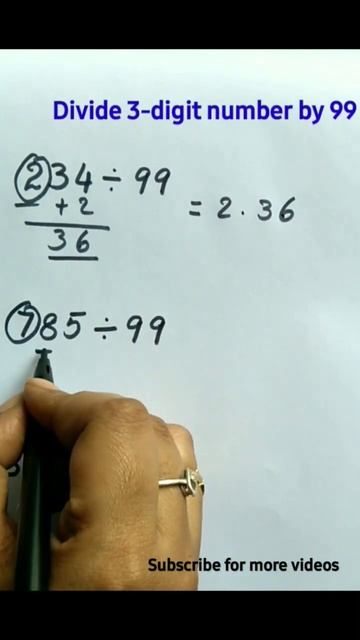 Divide 3-digit number by 99
234 ÷ 99
+ 2
= 2.36
36
785 ÷ 99
Subscribe for more videos